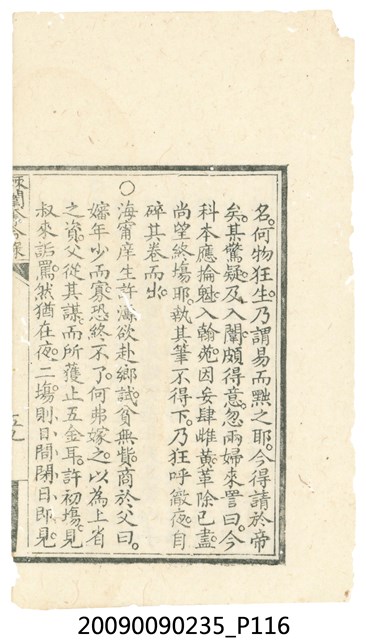 名。何物狂生。乃謂易而黜之耶。今得請於帝
矣。其驚疑。及入闈。頗得意。忽兩婦來詈曰。今
科本應掄魁。入翰苑。因妄肆雌黃。革除已盡。
尚望終場耶。執其筆不得下。乃狂呼徹夜。自
碎其卷而出。
○海甯庠生許 欲赴鄉試。貧無貲。商於父曰。
嬸年少而寡。恐終不了。何弗嫁之。以為上省
之資。父從其謀。而所獲止五金耳。許初塲。見
叔來詬罵。然猶在夜。二塲。則日間閉目即見
五九
20090090235_P116